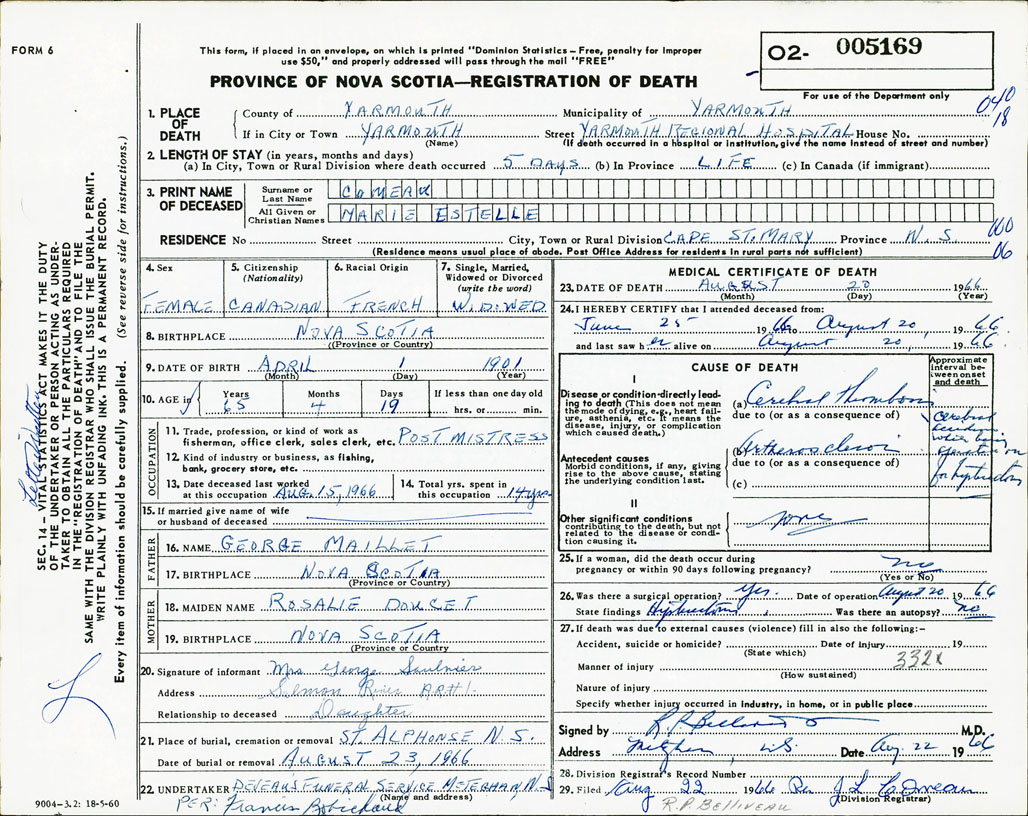 FORM 6
This form, if placed in an envelope, on which is printed "Dominion Statistics – Free, penalty for improper
use $50," and properly addressed will pass through the mail "FREE"
O2- 005169
PROVINCE OF NOVA SCOTIA—REGISTRATION OF DEATH
For use of the Department only
040
18
1. PLACE OF DEATH
County of YARMOUTH Municipality of YARMOUTH
If in City or Town YARMOUTH Street YARMOUTH REGIONAL HOSPITAL House No.
(Name) (If death occurred in a hospital or institution, give the name instead of street and number)
2. LENGTH OF STAY (in years, months and days)
(a) In City, Town or Rural Division where death occurred 5 DAYS (b) In Province LIFE (c) In Canada (if immigrant)
3. PRINT NAME OF DECEASED
Surname or Last Name COMEAU
All Given or Christian Names MARIE ESTELLE
000
06
RESIDENCE No Street City, Town or Rural Division CAPE ST. MARY Province N.S.
(Residence means usual place of abode. Post Office Address for residents in rural parts not sufficient)
4. Sex FEMALE
5. Citizenship (Nationality) CANADIAN
6. Racial Origin FRENCH
7. Single, Married, Widowed or Divorced (write the word) WIDOWED
8. BIRTHPLACE NOVA SCOTIA
(Province or Country)
9. DATE OF BIRTH APRIL 1 1901
(Month) (Day) (Year)
10. AGE in Years 65 Months 4 Days 19 If less than one day old hrs. or min.
OCCUPATION
11. Trade, profession, or kind of work as
fisherman, office clerk, sales clerk, etc. POST MISTRESS
12. Kind of industry or business, as fishing,
bank, grocery store, etc.
13. Date deceased last worked
at this occupation AUG. 15, 1966
14. Total yrs. spent in
this occupation 14 yrs
15. If married give name of wife
or husband of deceased
FATHER
16. NAME GEORGE MAILLET
17. BIRTHPLACE NOVA SCOTIA
(Province or Country)
MOTHER
18. MAIDEN NAME ROSALIE DOUCET
19. BIRTHPLACE NOVA SCOTIA
(Province or Country)
20. Signature of informant Mrs George Saulnier
Address Salmon River RR#1.
Relationship to deceased Daughter
21. Place of burial, cremation or removal ST. ALPHONSE N.S.
Date of burial or removal AUGUST 23, 1966
22. UNDERTAKER DEVEAU'S FUNERAL SERVICE METEGHAN, N.S
(Name and address)
PER: Francis Robichaud
MEDICAL CERTIFICATE OF DEATH
23. DATE OF DEATH AUGUST 20 1966
(Month) (Day) (Year)
24. I HEREBY CERTIFY that I attended deceased from:
June 25 1966 to August 20, 1966
and last saw her alive on August 20, 1966
CAUSE OF DEATH
Approximate interval between onset and death
I
Disease or condition directly leading to death (This does not mean the mode of dying, e.g., heart failure, asthenia, etc. It means the disease, injury, or complication which caused death.)
(a) Cerebral Thrombosis
due to (or as a consequence of)
Antecedent causes
Morbid conditions, if any, giving rise to the above cause, stating the underlying condition last.
(b) Arterosclerosis
due to (or as a consequence of)
(c)
cerebral
while being
operated on
for hysterectomy
II
Other significant conditions
contributing to the death, but not related to the disease or condition causing it.
none
25. If a woman, did the death occur during
pregnancy or within 90 days following pregnancy? no
(Yes or No)
26. Was there a surgical operation? yes. Date of operation August 20 1966
State findings Was there an autopsy? no
27. If death was due to external causes (violence) fill in also the following:–
Accident, suicide or homicide? Date of injury 19
(State which)
332X
Manner of injury
(How sustained)
Nature of injury
Specify whether injury occurred in industry, in home, or in public place
Signed by R.P. Belliveau M.D.
Address Meteghan N.S. Date Aug. 22 1966
28. Division Registrar's Record Number
29. Filed Aug 22 1966 J L Comeau
(Division Registrar)
R.P. BELLIVEAU
SEC. 14 – VITAL STATISTICS ACT MAKES IT THE DUTY
OF THE UNDERTAKER OR PERSON ACTING AS UNDER-
TAKER TO OBTAIN ALL THE PARTICULARS REQUIRED
IN THE "REGISTRATION OF DEATH" AND TO FILE THE
SAME WITH THE DIVISION REGISTRAR WHO SHALL ISSUE THE BURIAL PERMIT.
WRITE PLAINLY WITH UNFADING INK. THIS IS A PERMANENT RECORD.
Every item of information should be carefully supplied. (See reverse side for instructions.)
9004-3.2: 18-5-60